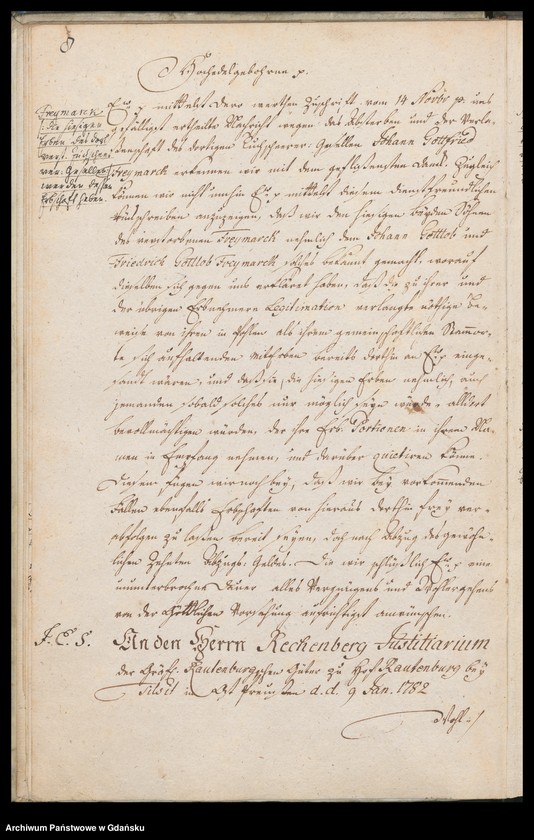 8
Hochedelgebohrne p.
Freymarck
die hiesigen
Erben des dort
verst. Tuchscheer
rer Gesellen
werden dessen
Erbschaft heben.
Ew. p mittelst Dero werthen Zuschrift vom 14 Novbr p. uns
gefälligst ertheilte Nachricht wegen des Absterbens und der Verla-
ssenschaft des dortigen Tuchscheerer-Gesellen Johann Gottfried
Freymarck erkennen wir mit dem geflissensten Dank. Zugleich
können wir nicht umhin Ew. p mittelst dieses dienstfreundlichen
Antschreiben anzuzeigen, daß wir den hiesigen beyden Söhnen
des verstorbenen Freymarck nehmlich dem Johann Gottlob und
Friedrich Gottlob Freymarck solches bekannt gemacht, worauf
dieselben sich gegen uns erkläret haben, daß die zu ihrer und
der übrigen Erbnehmern Legitimation verlangte nöthige Be-
weise von ihren in Pohlen als ihrem gemeinschaftlichen Stammor-
te sich aufhaltenden Miterben bereits dorthin an Ew. p einge-
sandt wären, und daß sie, die hiesigen Erben nehmlich, auch
jemanden sobald solches nur möglich seyn würde, alldort
bevollmächtigen würden, der ihre Erb-Portionen in ihrem Na-
men in Empfang nehmen, und darüber quitiren könne.
Diesem fügen wir noch bey, daß wir bey vorkommenden
Fällen ebenfalls Erbschaften von hieraus dorthin frey ver-
abfolgen zu lassen bereit seyen, doch nach Abzug des gewöhn-
lichen Zehnten Abzugs-Geldes. Die wir schließlich Ew. p eine
ununterbrochne Dauer alles Vergnügens und Wohlergehens
von der Göttlichen Vorsehung aufrichtigst anwünschen.
J. E. S. An den Herrn Rechenberg Justitiarium
der Gräfl. Rautenburgschen Güter zu Hof Rautenburg bey
Tilsit in Ost Preußen d. d. 9 Jan. 1782
Wohl-
Archiwum Państwowe w Gdańsku